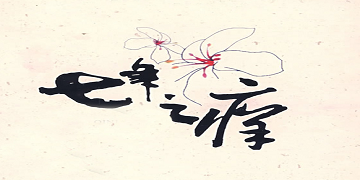 七年之痒